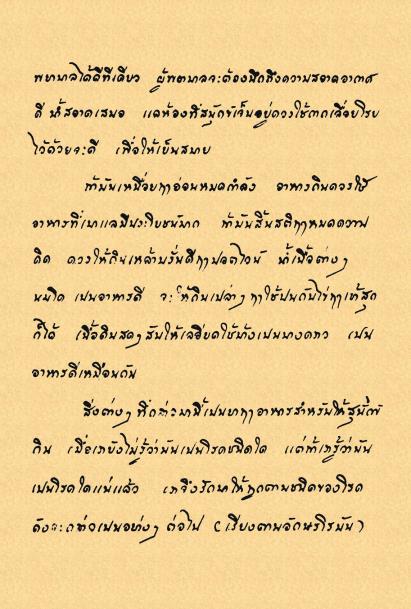 พยาบาลได้ดีทีเดียว ผู้พยาบาลจะต้องนึกถึงความสอาดอากาศ
ดี น้ำสอาดเสมอ แลห้องที่สุนัขเจ็บอยู่ควรใช้การเลื่อยโรย
ไว้ด้วยจะดี เพื่อให้เย็นสบาย
ถ้ามันเหนื่อยฤาอ่อนหมดกำลัง อาหารกินควรใช้
อาหารที่เบาแลมีประโยชน์มาก ถ้ามันสิ้นสติฤาหมดความ
คิด ควรให้กินเหล้าบรั่นดีฤาปอตไวน์ น้ำเนื้อต่างๆ
นมโค เปนอาหารดี จะให้กินเปล่าๆ ฤาใช้ปนกับไข่ฤาเข้าสุก
ก็ได้ เนื้อดิบสดๆ สับให้เลอียดใช้ทั้งเปนบางคราว เปน
อาหารดีเหมือนกัน
สิ่งต่างๆ ที่กล่าวมานี้เปนยาฤาอาหารสำหรับให้สุนัข
กิน เมื่อเรายังไม่รู้ว่ามันเปนโรคชนิดใด แต่ถ้าเรารู้ว่ามัน
เปนโรคใดแน่แล้ว เราจึงรักษาให้ถูกตามชนิดของโรค
ดังจะกล่าวเปนอย่างๆ ต่อไป (เรียงตามอักษรโรมัน)